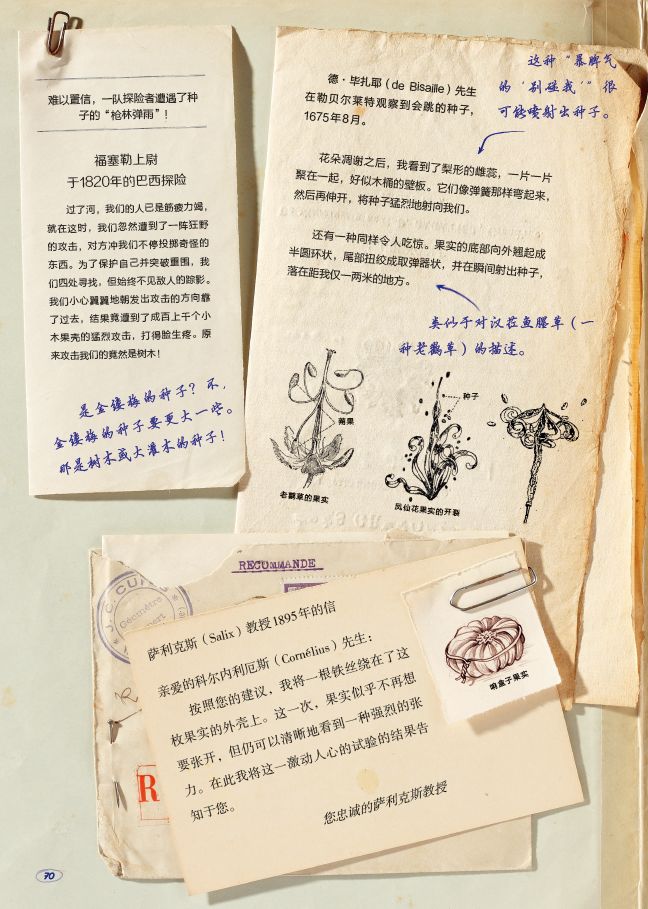 难以置信，一队探险者遭遇了种
子的“枪林弹雨”！
福塞勒上尉
于1820年的巴西探险
过了河，我们的人已是筋疲力竭，
就在这时，我们忽然遭到了一阵狂野
的攻击，对方冲我们不停投掷奇怪的
东西。为了保护自己并突破重围，我
们四处寻找，但始终不见敌人的踪影。
我们小心翼翼地朝发出攻击的方向靠
了过去，结果竟遭到了成百上千个小
木果壳的猛烈攻击，打得脸生疼。原
来攻击我们的竟然是树木！
是金缕梅的种子？不，
金缕梅的种子要更大一些。
那是树木或大灌木的种子！
德·毕扎耶（de Bisaille）先生
在勒贝尔莱特观察到会跳的种子，
1675年8月。
这种“暴脾气
的‘别碰我’”很
可能喷射出种子。
花朵凋谢之后，我看到了梨形的雌蕊，一片一片
聚在一起，好似木桶的壁板。它们像弹簧那样弯起来，
然后再伸开，将种子猛烈地射向我们。
还有一种同样令人吃惊。果实的底部向外翘起成
半圆环状，尾部扭绞成取弹器状，并在瞬间射出种子，
落在距我仅一两米的地方。
类似于对汉荭鱼腥草（一
种老鹳草）的描述。
蒴果
老鹳草的果实
种子
凤仙花果实的开裂
RECOMMANDE
J. C. CU
Géomètre
R
萨利克斯（Salix）教授1895年的信
亲爱的科尔内利厄斯（Cornélius）先生：
按照您的建议，我将一根铁丝绕在了这
枚果实的外壳上。这一次，果实似乎不再想
要张开，但仍可以清晰地看到一种强烈的张
力。在此我将这一激动人心的试验的结果告
知于您。
您忠诚的萨利克斯教授
响盒子果实
70